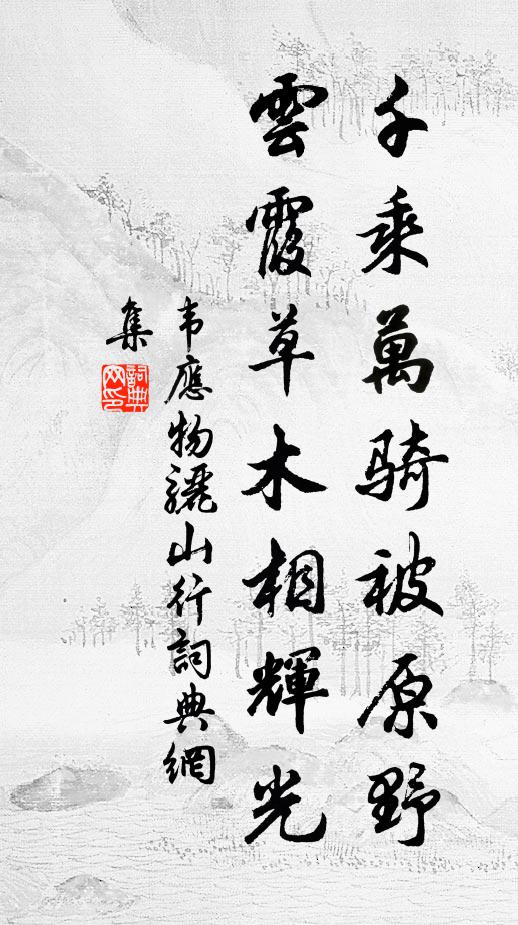 千乘萬骑被原野
雲霞草木相輝光
韦應物驪山行詞典網
集
詞典
网印